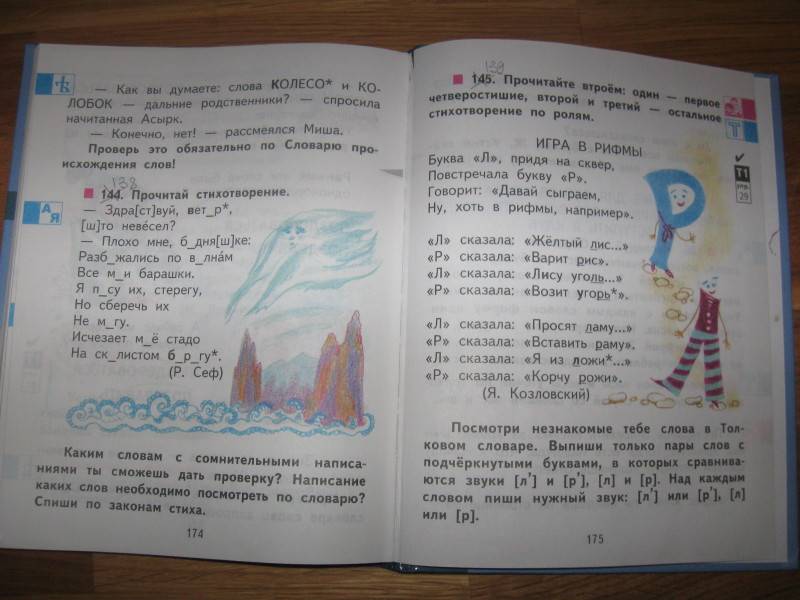 — Как вы думаете: слова КОЛЕСО* и КО-
ЛОБОК — дальние родственники? — спросила
начитанная Асырк.
— Конечно, нет! — рассмеялся Миша.
Проверь это обязательно по Словарю про-
исхождения слов!
138
144. Прочитай стихотворение.
АЯ
— Здра[ст]вуй, вет_р*,
[ш]то неве́сел?
— Плохо мне, б_дня[ш]ке:
Разб_жались по в_лна́м
Все м_и барашки.
Я п_су их, стерегу,
Но сберечь их
Не м_гу.
Исчезает м_ё стадо
На ск_листом б_р_гу*,
(Р. Сеф)
Каким словам с сомнительными написа-
ниями ты сможешь дать проверку? Написание
каких слов необходимо посмотреть по словарю?
Спиши по законам стиха.
174
139
145. Прочитайте втроём: один — первое
четверостишие, второй и третий — остальное
стихотворение по ролям.
Т
Т1
упр.
29
ИГРА В РИФМЫ
Буква «Л», придя на сквер,
Повстречала букву «Р».
Говорит: «Давай сыграем,
Ну, хоть в рифмы, например».
«Л» сказала: «Жёлтый лис...»
«Р» сказала: «Варит рис».
«Л» сказала: «Лису уголь...»
«Р» сказала: «Возит угорь*».
«Л» сказала: «Просят ламу...»
«Р» сказала: «Вставить раму».
«Л» сказала: «Я из ложи*...»
«Р» сказала: «Корчу рожи».
(Я. Козловский)
Посмотри незнакомые тебе слова в Тол-
ковом словаре. Выпиши только пары слов с
подчёркнутыми буквами, в которых сравнива-
ются звуки [л'] и [р'], [л] и [р]. Над каждым
словом пиши нужный звук: [л'] или [р'], [л]
или [р].
175